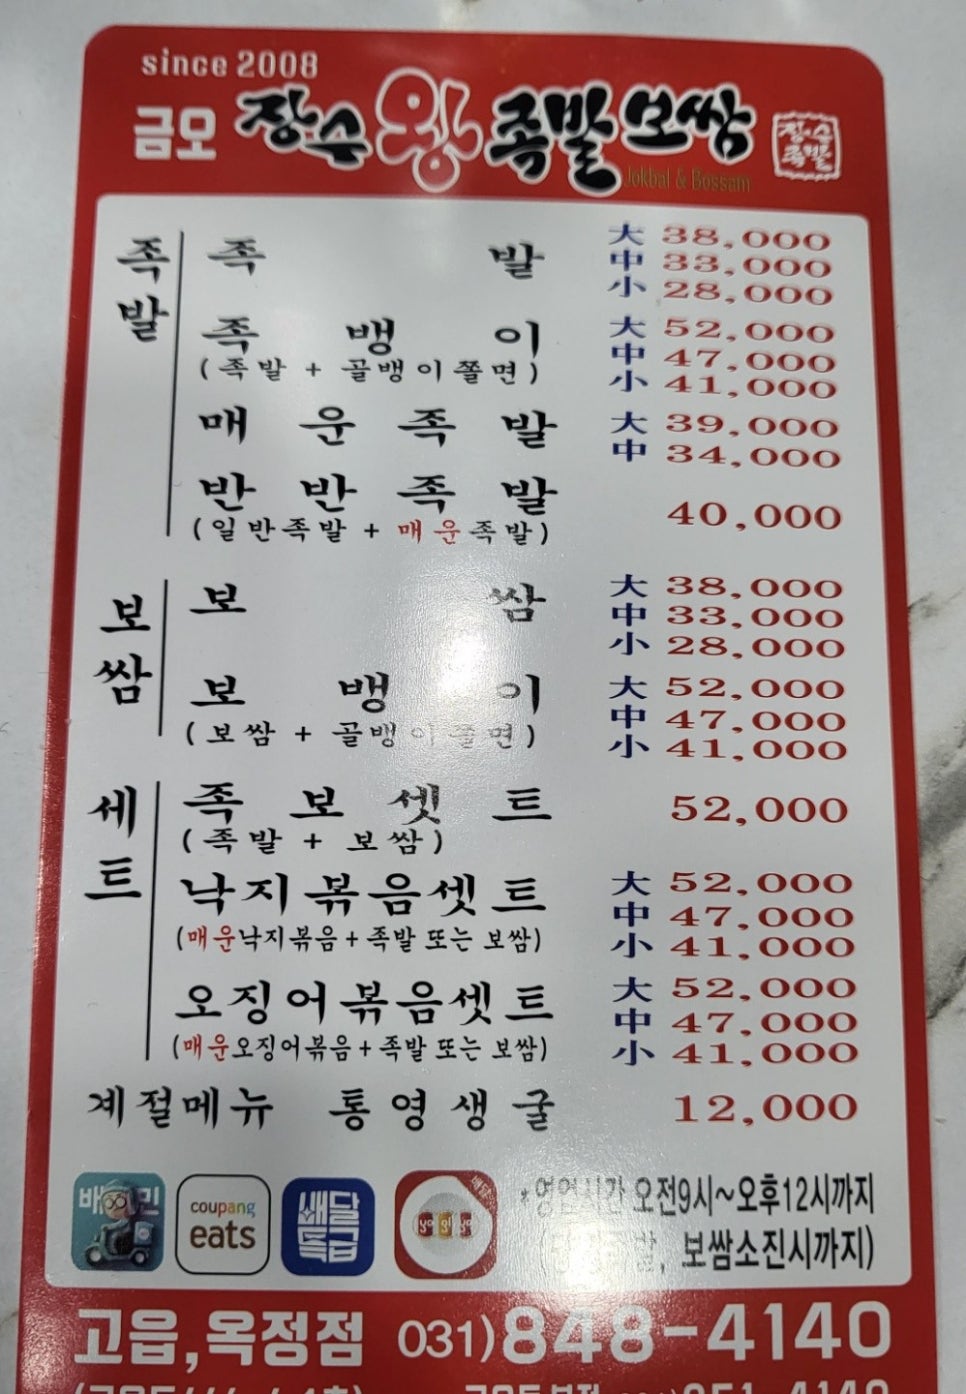 since 2008
금오 장수왕족발보쌈
장·수
족발
Jokbal & Bossam
족발
족발 大 38,000
中 33,000
小 28,000
족뱅이 大 52,000
(족발 + 골뱅이쫄면) 中 47,000
小 41,000
매운족발 大 39,000
中 34,000
반반족발 40,000
(일반족발 + 매운족발)
보쌈
보쌈 大 38,000
中 33,000
小 28,000
보뱅이 大 52,000
(보쌈 + 골뱅이쫄면) 中 47,000
小 41,000
세트
족보셋트 52,000
(족발 + 보쌈)
낙지볶음셋트 大 52,000
(매운낙지볶음+족발 또는 보쌈) 中 47,000
小 41,000
오징어볶음셋트 大 52,000
(매운오징어볶음+족발 또는 보쌈) 中 47,000
小 41,000
계절메뉴 통영생굴 12,000
배민
coupang
eats
배달특급
요기요
*영업시간 오전9시~오후12시까지
보쌈소진시까지)
고읍,옥정점 031)848-4140